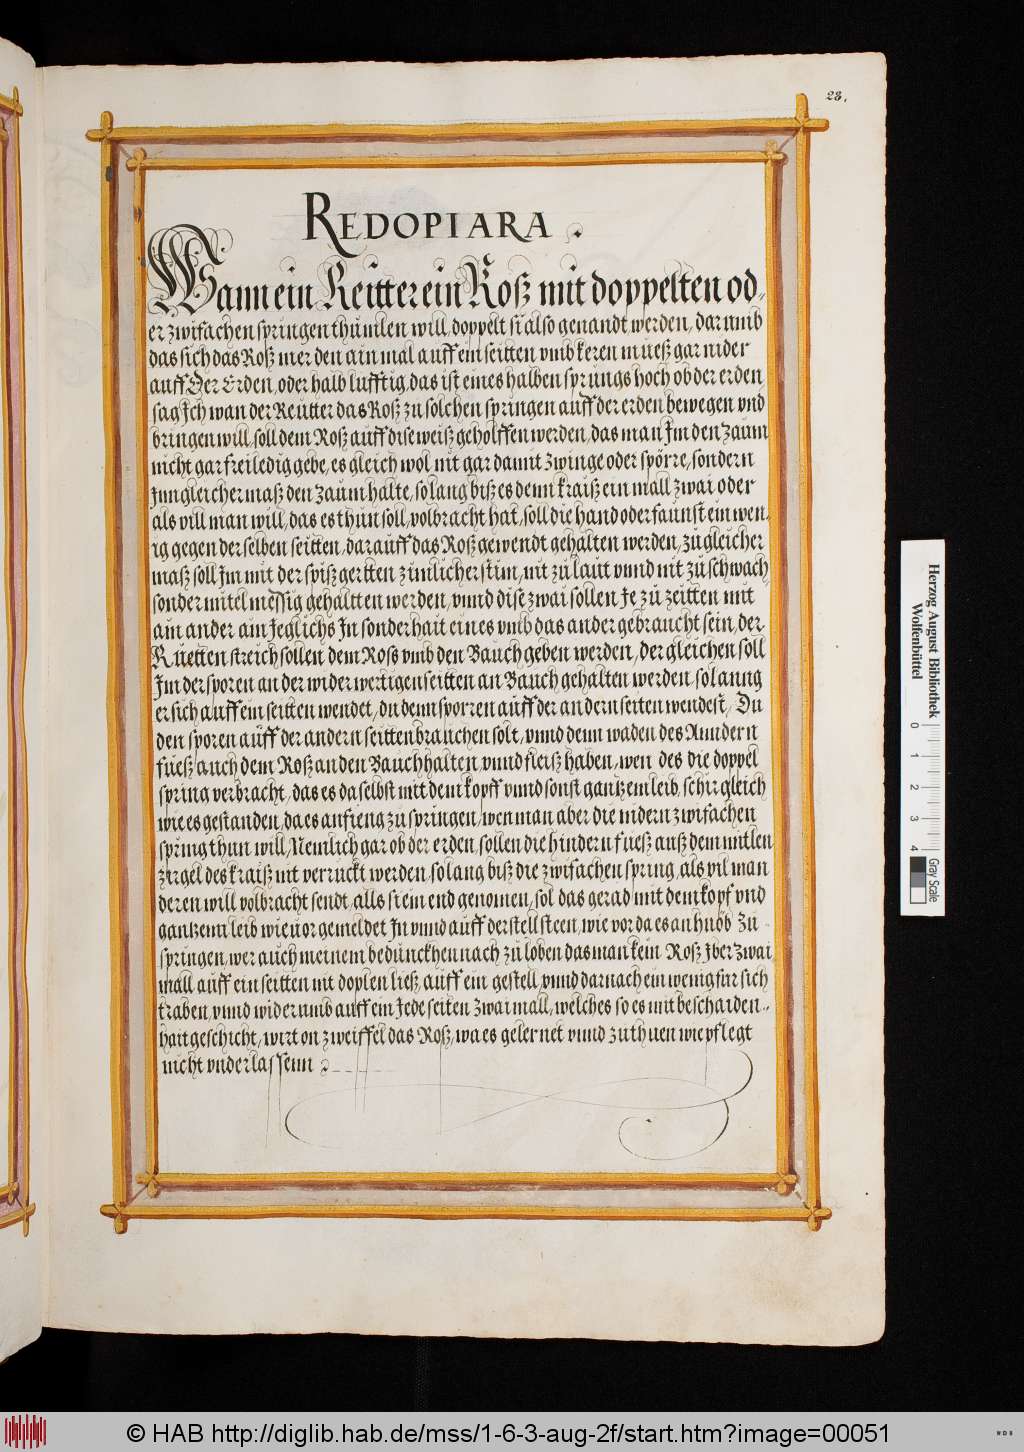 28.
REDOPIARA.
Wann ein Reitter ein Roß mit doppelten od⸗
er zwifachen springen thumlen will, doppelt si also genandt werden, darumb
das sich das Roß mer den ain mal auff ein seitten vmbkeren mueß gar nider
auff Der Erden, oder halb lufftig, das ist eines halben sprungs hoch ob der erden
sag Ich wan der Reutter das Roß zu solchen springen auff der erden bewegen vnd
bringen will, soll dem Roß auff dise weiß geholffen werden, das man Im den Zaum
nicht gar frei ledig gebe, es gleich wol nit gar damit zwinge oder spörre, sondern
Inn gleicher maß den Zaum halte, so lang biß es denn kraiß ein mall zwai oder
als vill man will, das es thun soll, volbracht hat, soll die hand oder faunst ein wen⸗
ig gegen derselben seitten, darauff das Roß gewendt gehalten werden, zu gleicher
maß soll Im mit der spiß gertten zimlicher stim, nit zu laut vnnd nit zu schwach
sonder mitel messig gehaltten werden, vnnd dise zwai sollen Je zu zeitten mit
ain ander ain Jeglichs In sonderhait eines vmb das ander gebraucht sein, der
Ruetten streich sollen dem Roß vmb den Bauch geben werden, dergleichen soll
Im der sporen an der widerwertigen seitten an Bauch gehalten werden so lanng
er sich auff ein seitten wendet, du denn sporren auff der andern seiten wendest, Du
den sporen auff der andern seitten brauchen solt, vnnd denn waden des Anndern
fueß auch dem Roß an den Bauch halten, vnnd fleiß haben, wen des die doppel
spring verbracht, das es daselbst mit dem kopff vnnd sonst gantzem leib, schir gleich
wie es gestanden, da es anfieng zu springen, wen man aber die nidern zwifachen
spring thun will, Nemlich gar ob der erden, sollen die hindern fueß auß dem mitlen
zirgel des kraiß nit verruckt werden, so lang biß die zwifachen spring, als vil man
deren will volbracht sendt, alls si ein end genomen, sol das gerad mit dem kopf vnd
gantzem leib wie uorgemeldet In vnnd auff der stell steen, wie vor da es anhuöb Zu
springen, wer auch meinem bedünckhen nach zu loben das man kein Roß Iber zwai
mall auff ein seitten mit doplen ließ, auff ein gestell, vnnd darnach ein wenig für sich
traben, vnnd widerumb auff ein Jede seiten zwai mall, welches so es mit beschaiden⸗
hait geschicht, wirt on zweiffel das Roß, wa es gelernet vnnd zu thuen wie pflegt
nicht vnderlassenn
Herzog August Bibliothek
Wolfenbüttel
0 1 2 3 4
Gray Scale
© HAB http://diglib.hab.de/mss/1-6-3-aug-2f/start.htm?image=00051